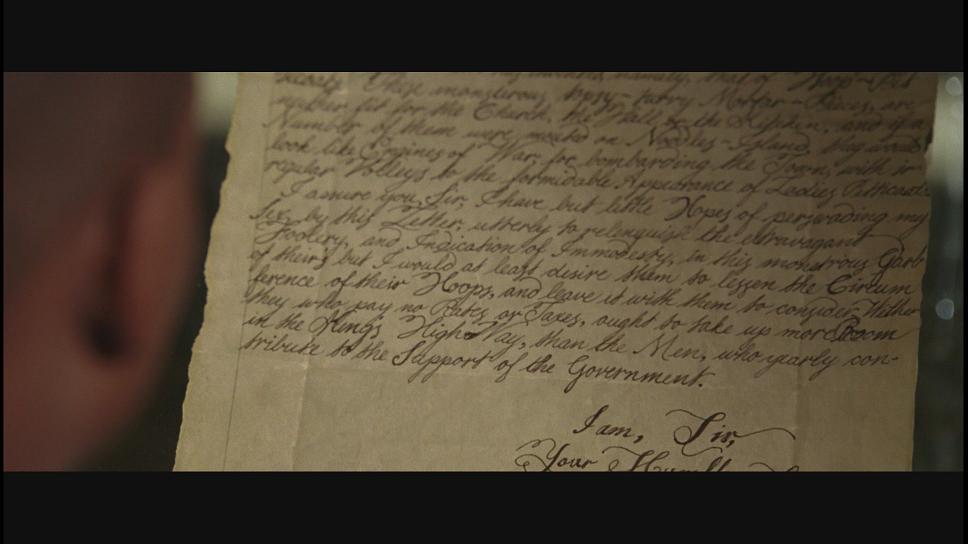 namely, that of Hoop-Pet
ticoats. These monsterous topsy-turvy Mortar-Pieces, are
neither fit for the Church, the Hall, or the Kitchen, and if a
Number of them were mounted on Noddles-Island, they would
look like Engines of War, for bombarding the Town, with ir
regular Volleys to the formidable Appearance of Ladies Petticoats.
I assure you, Sir, I have but little Hopes of perswading my
Sex, by this Letter, utterly to relinquish the extravagant
Foolery, and Indication of Immodesty, in this monstrous Garb
of their's but I would at least desire them to lessen the Circum
ference of their Hoops, and leave it with them to consider, Hether
they who pay no Rates or Taxes, ought to take up more Room
in the King's High-Way, than the Men, who yearly con-
tribute to the Support of the Government.
I am, Sir,
Your Humble